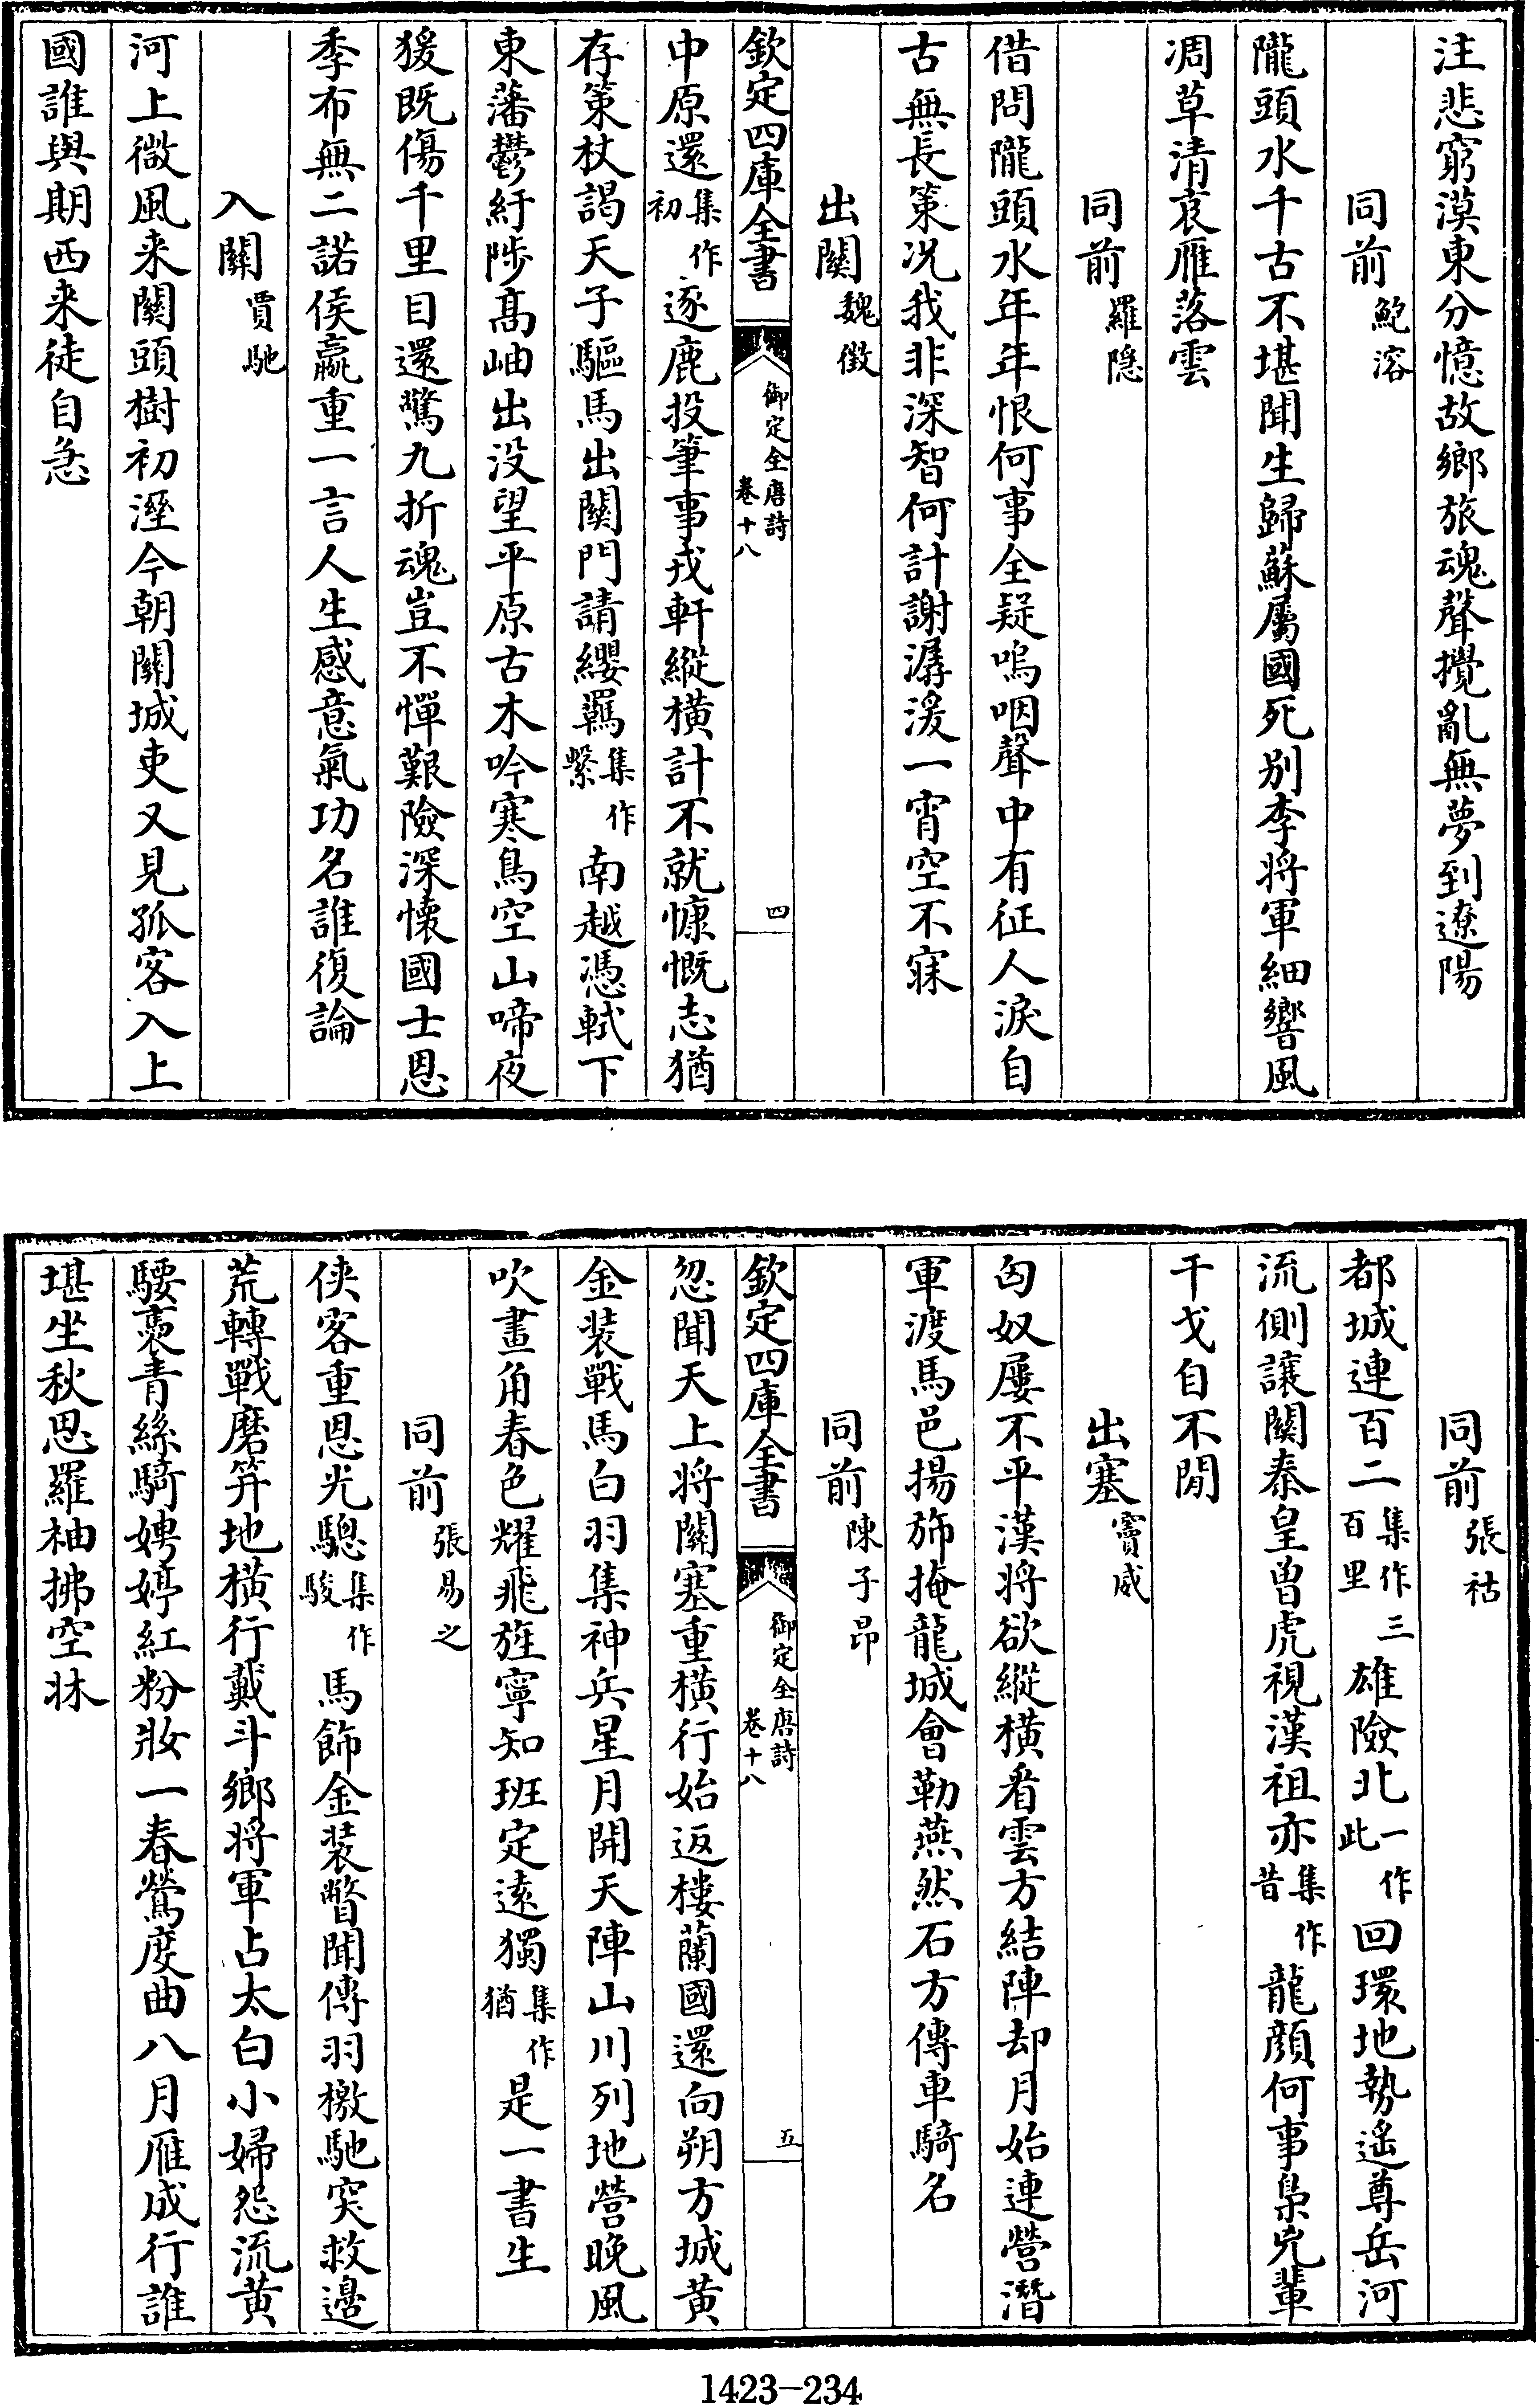 注悲窮漠東分憶故鄉旅魂聲攪亂無夢到遼陽
同前鮑溶
隴頭水千古不堪聞生歸蘇屬國死別李将軍細響風
凋草清哀雁落雲
同前羅隠
借問隴頭水年年恨何事全疑嗚咽聲中有征人淚自
古無長策况我非深智何計謝潺湲一宵空不寐
出關魏徴
欽定四庫全書 御定全唐詩卷十八 四
中原還集作初逐鹿投筆事戎軒縱横計不就慷慨志猶
存策杖謁天子驅馬出關門請纓羈集作繫南越憑軾下
東藩鬱紆陟髙岫出没望平原古木吟寒鳥空山啼夜
猨既傷千里目還驚九折魂豈不憚艱險深懷國士恩
季布無二諾侯嬴重一言人生感意氣功名誰復論
入關賈馳
河上微風来關頭樹初溼今朝關城吏又見孤客入上
國誰與期西来徒自急
同前張祜
都城連百二集作三百里雄險北一作此回環地勢遥尊岳河
流側讓關秦皇曾虎視漢祖亦集作昔龍顔何事梟兇輩
干戈自不閒
出塞竇威
匈奴屢不平漢将欲縱横看雲方結陣却月始連營潛
軍渡馬邑揚斾掩龍城會勒燕然石方傳車騎名
同前陳子昂
欽定四庫全書 御定全唐詩卷十八 五
忽聞天上将關塞重横行始返樓蘭國還向朔方城黄
金装戰馬白羽集神兵星月開天陣山川列地營晚風
吹畫角春色耀飛旌寧知班定遠獨集作猶是一書生
同前張易之
侠客重恩光驄集作駿馬飾金装瞥聞傳羽檄馳突救邊
荒轉戰磨笄地横行戴斗鄉将軍占太白小婦怨流黄
騕褭青絲騎娉婷紅粉妝一春鶯度曲八月雁成行誰
堪坐秋思羅袖拂空牀
1423-234